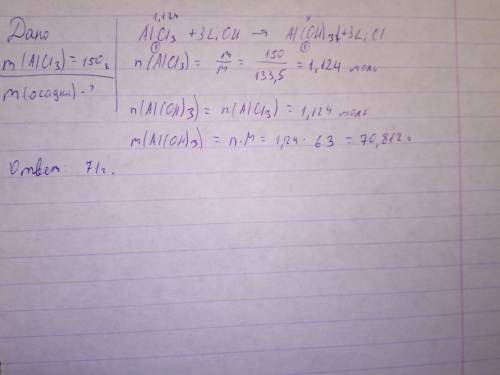 Дано
m(AlCl3)=150г
m(осадка)-?
1,124 x
AlCl3 + 3LiOH → Al(OH)3↓+3LiCl
1 1
n(AlCl3) = m/M = 150/133,5 = 1,124 моль
n(Al(OH)3) = n(AlCl3) = 1,124 моль
m(Al(OH)3) = n·M = 1,24 · 63 = 70,812г
Ответ: 71г.